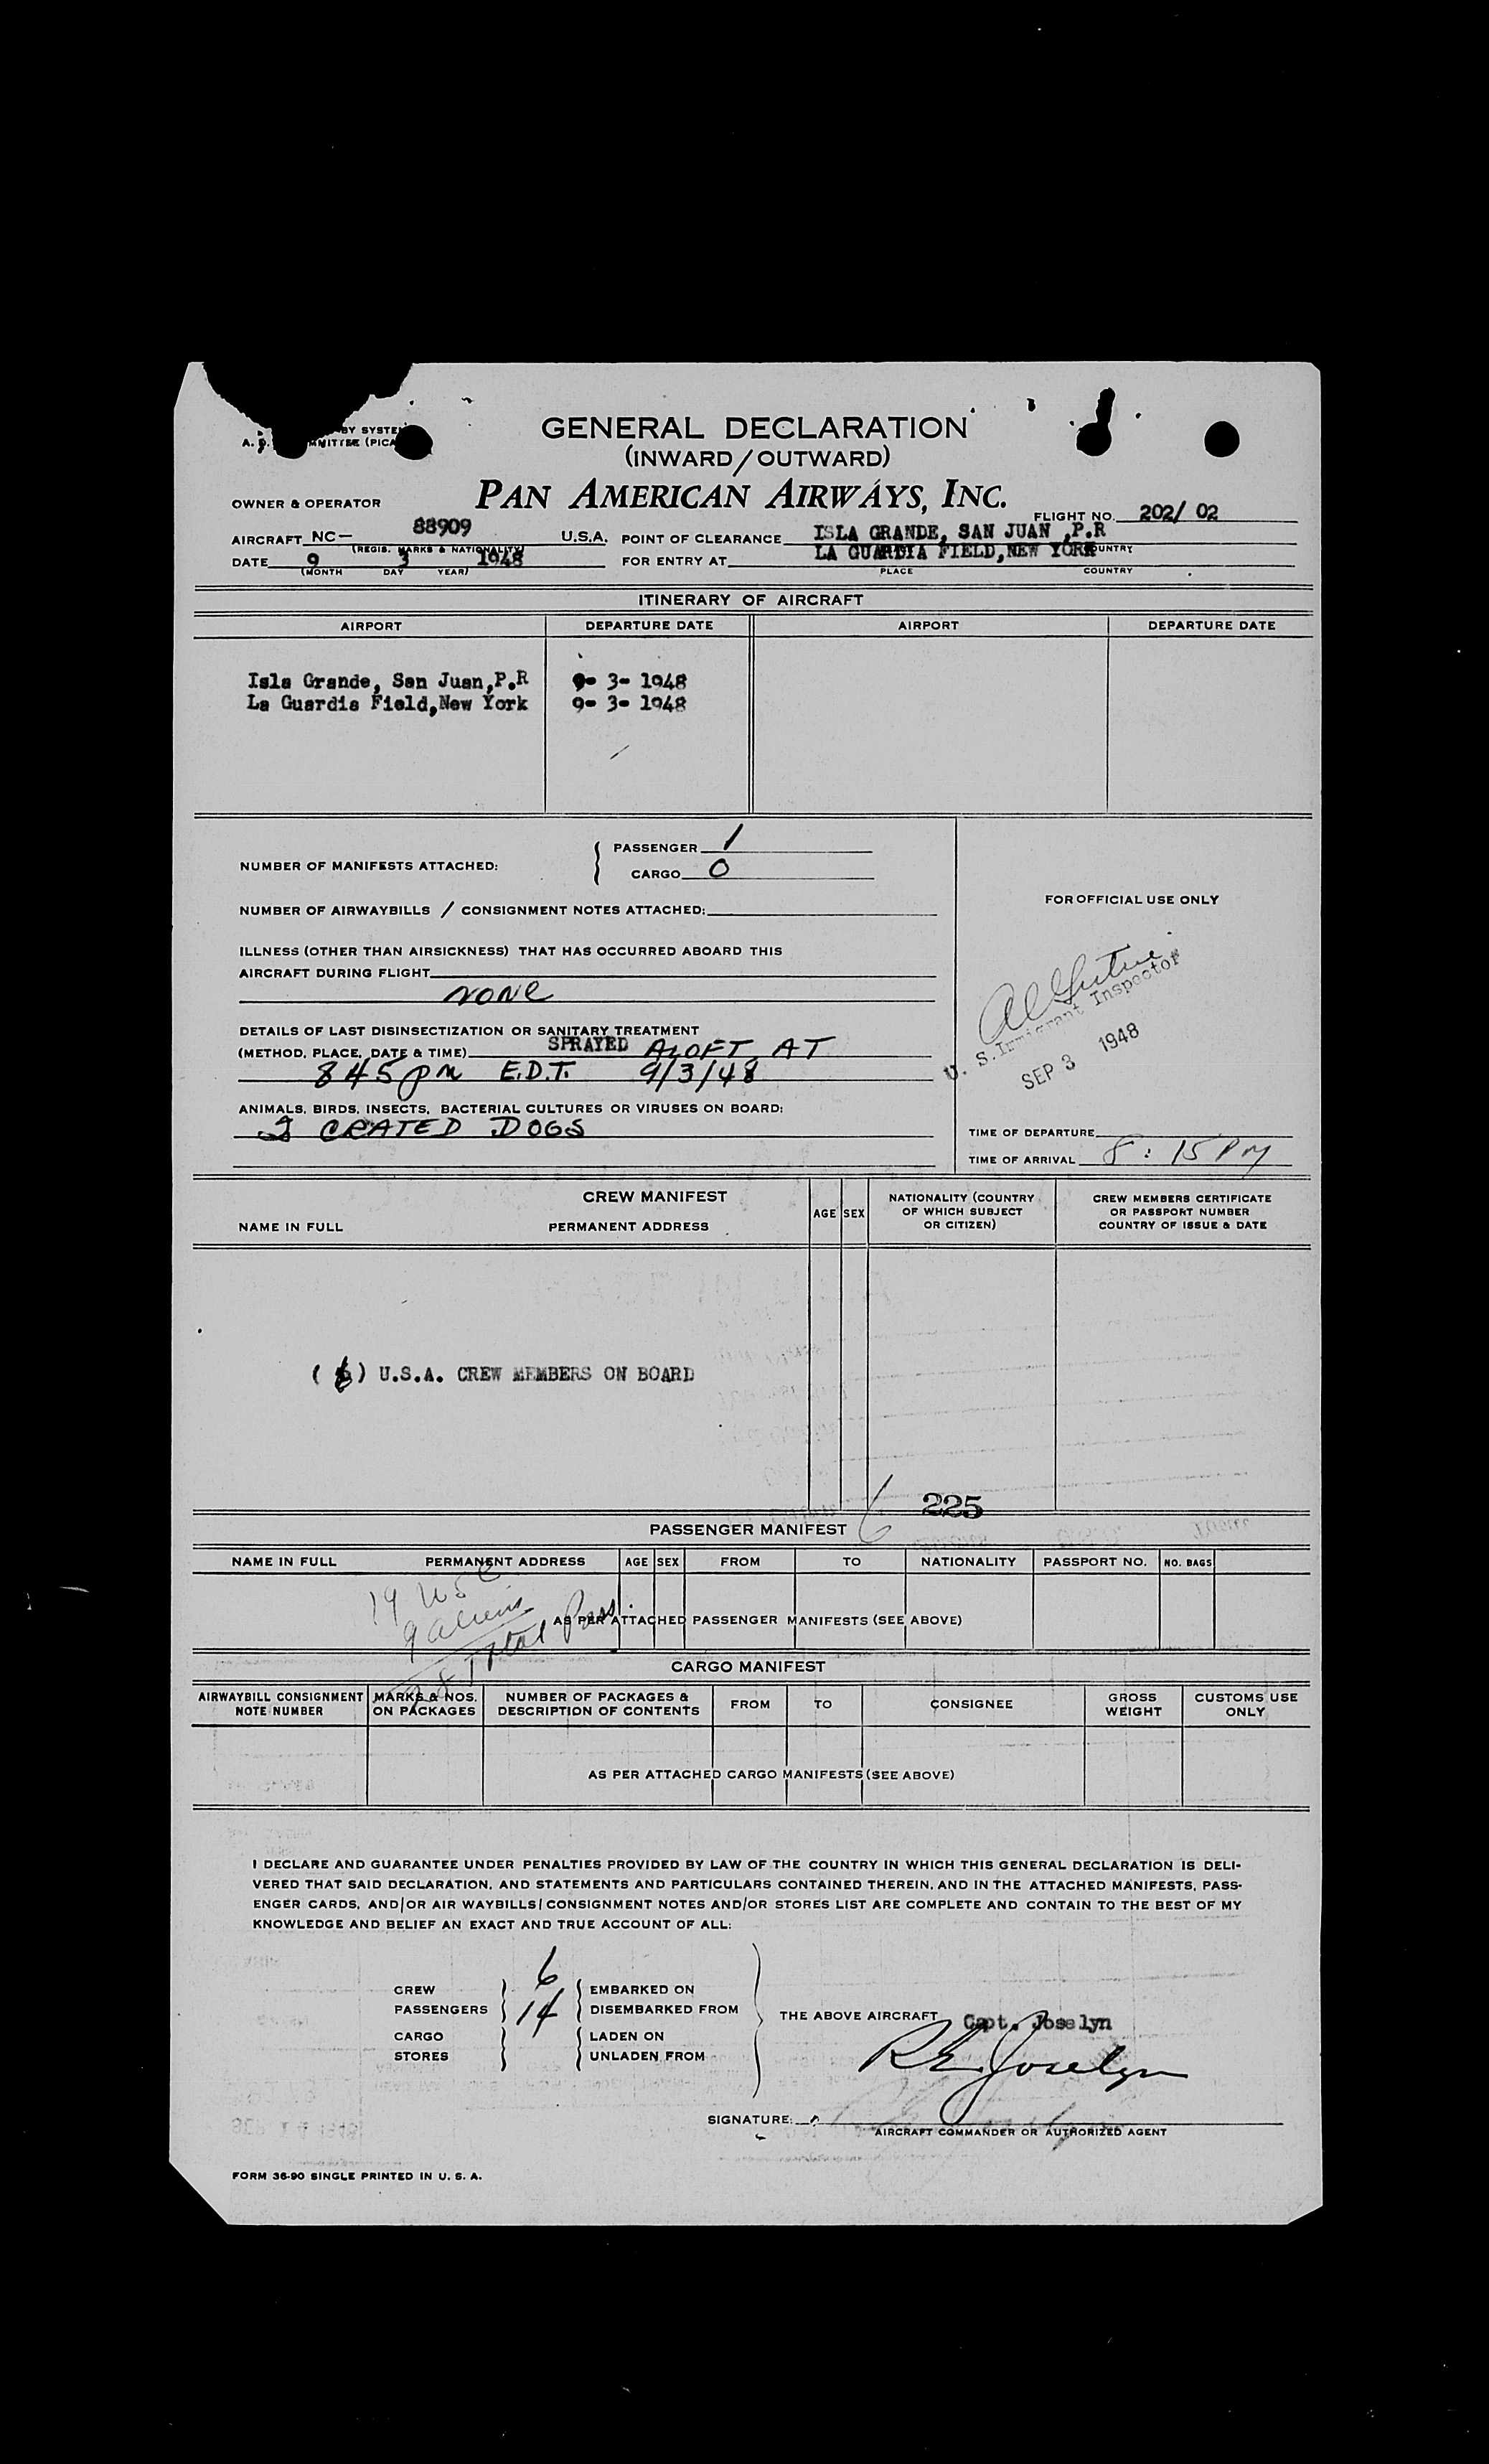 BY SYSTE
A. MITTEE (PICA
GENERAL DECLARATION
(INWARD/OUTWARD)
OWNER & OPERATOR PAN AMERICAN AIRWAYS, INC.
FLIGHT NO. 202/ 02
AIRCRAFT NC- 88909 U.S.A. POINT OF CLEARANCE ISLA GRANDE, SAN JUAN ,P.R
(REGIS. MARKS & NATIONALITY) COUNTRY
DATE 9 3 1948 FOR ENTRY AT LA GUARDIA FIELD,NEW YORK
(MONTH DAY YEAR) PLACE COUNTRY
ITINERARY OF AIRCRAFT
AIRPORT DEPARTURE DATE AIRPORT DEPARTURE DATE
Isla Grande, San Juan,P.R 9- 3- 1948
La Guardia Field,New York 9- 3- 1948
NUMBER OF MANIFESTS ATTACHED: PASSENGER 1
CARGO 0
NUMBER OF AIRWAYBILLS / CONSIGNMENT NOTES ATTACHED:
ILLNESS (OTHER THAN AIRSICKNESS) THAT HAS OCCURRED ABOARD THIS
AIRCRAFT DURING FLIGHT
NONE
DETAILS OF LAST DISINSECTIZATION OR SANITARY TREATMENT
(METHOD, PLACE, DATE & TIME) SPRAYED ALOFT AT
845 pm E.D.T. 9/3/48
ANIMALS, BIRDS, INSECTS, BACTERIAL CULTURES OR VIRUSES ON BOARD:
2 CRATED DOGS
FOR OFFICIAL USE ONLY
U. S. Immigrant Inspector
SEP 3 1948
TIME OF DEPARTURE
TIME OF ARRIVAL 8:15 PM
CREW MANIFEST
NAME IN FULL PERMANENT ADDRESS AGE SEX NATIONALITY (COUNTRY OF WHICH SUBJECT OR CITIZEN) CREW MEMBERS CERTIFICATE OR PASSPORT NUMBER COUNTRY OF ISSUE & DATE
( 6 ) U.S.A. CREW MEMBERS ON BOARD
6 225
PASSENGER MANIFEST
NAME IN FULL PERMANENT ADDRESS AGE SEX FROM TO NATIONALITY PASSPORT NO. NO. BAGS
19 USC
9 aliens
28 Total Pass.
AS PER ATTACHED PASSENGER MANIFESTS (SEE ABOVE)
CARGO MANIFEST
AIRWAYBILL CONSIGNMENT NOTE NUMBER MARKS & NOS. ON PACKAGES NUMBER OF PACKAGES & DESCRIPTION OF CONTENTS FROM TO CONSIGNEE GROSS WEIGHT CUSTOMS USE ONLY
AS PER ATTACHED CARGO MANIFESTS (SEE ABOVE)
I DECLARE AND GUARANTEE UNDER PENALTIES PROVIDED BY LAW OF THE COUNTRY IN WHICH THIS GENERAL DECLARATION IS DELI-
VERED THAT SAID DECLARATION, AND STATEMENTS AND PARTICULARS CONTAINED THEREIN, AND IN THE ATTACHED MANIFESTS, PASS-
ENGER CARDS, AND/OR AIR WAYBILLS/CONSIGNMENT NOTES AND/OR STORES LIST ARE COMPLETE AND CONTAIN TO THE BEST OF MY
KNOWLEDGE AND BELIEF AN EXACT AND TRUE ACCOUNT OF ALL:
CREW 6 EMBARKED ON
PASSENGERS 14 DISEMBARKED FROM
CARGO LADEN ON
STORES UNLADEN FROM
THE ABOVE AIRCRAFT Capt. Joselyn
R E Joselyn
SIGNATURE:
AIRCRAFT COMMANDER OR AUTHORIZED AGENT
FORM 36-90 SINGLE PRINTED IN U. S. A.